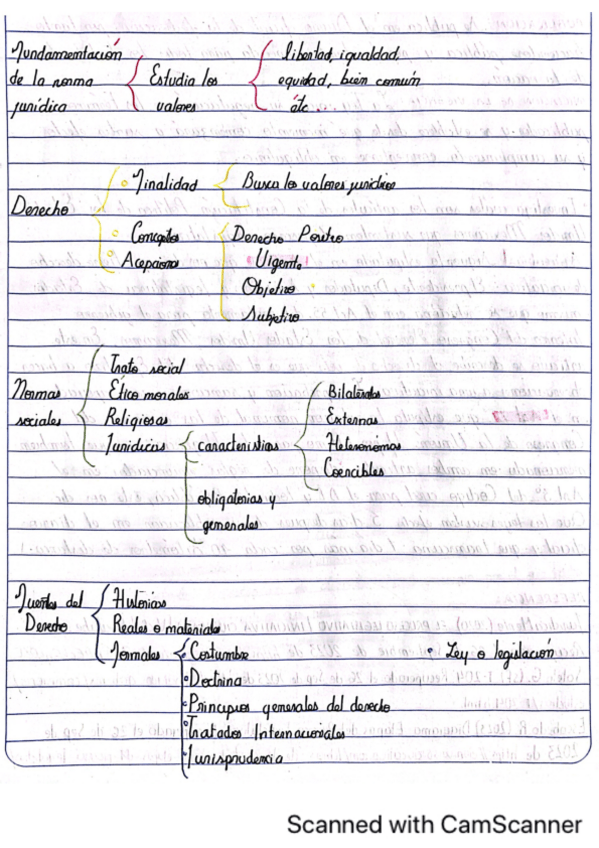 Fundamentación
de la norma
jurídica
Estudia los
valores
libertad, igualdad,
equidad, bien común
etc...
Derecho
Finalidad
Busca los valores jurídicos
Conceptos
Acepciones
Derecho Positivo
Vigente
Objetivo
Subjetivo
Normas
sociales
Trato social
Ético morales
Religiosas
Jurídicas
características
Bilaterales
Externas
Heterónomas
Coercibles
obligatorias y
generales
Fuentes del
Derecho
Históricas
Reales o materiales
Formales
Costumbre
• Ley o legislación
Doctrina
Principios generales del derecho
Tratados Internacionales
Jurisprudencia
Scanned with CamScanner